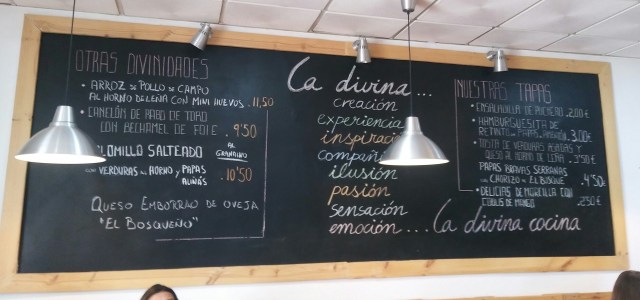 OTRAS DIVINIDADES
• ARROZ DE POLLO DE CAMPO
AL HORNO DE LEÑA CON MINI HUEVOS. 11,50
• CANELÓN DE RABO DE TORO
CON BECHAMEL DE FOIE. 9'50
LOMILLO SALTEADO AL GRANDINO
CON VERDURAS AL HORNO Y PAPAS
ALIÑÁS 10'50
QUESO EMBOTIJADO DE OVEJA
"EL BOSQUEÑO"
La divina...
creación
experiencia
inspirac
compañ
ilusión
pasión
sensación
emoción
...La divina cocina
NUESTRAS TAPAS
• ENSALADILLA DE PUCHERO 2,00€
• HAMBURGUESITA DE
RETINTO CON PAPAS 3,00€
TOSTA DE VERDURAS ASADAS Y
QUESO AL HORNO DE LEÑA. 3'50€
PAPAS BRAVAS SERRANAS
CON CHORIZO EL BOSQUE 4'50€
• DELICIAS DE MORCILLA CON
DE MANGO 2,50€